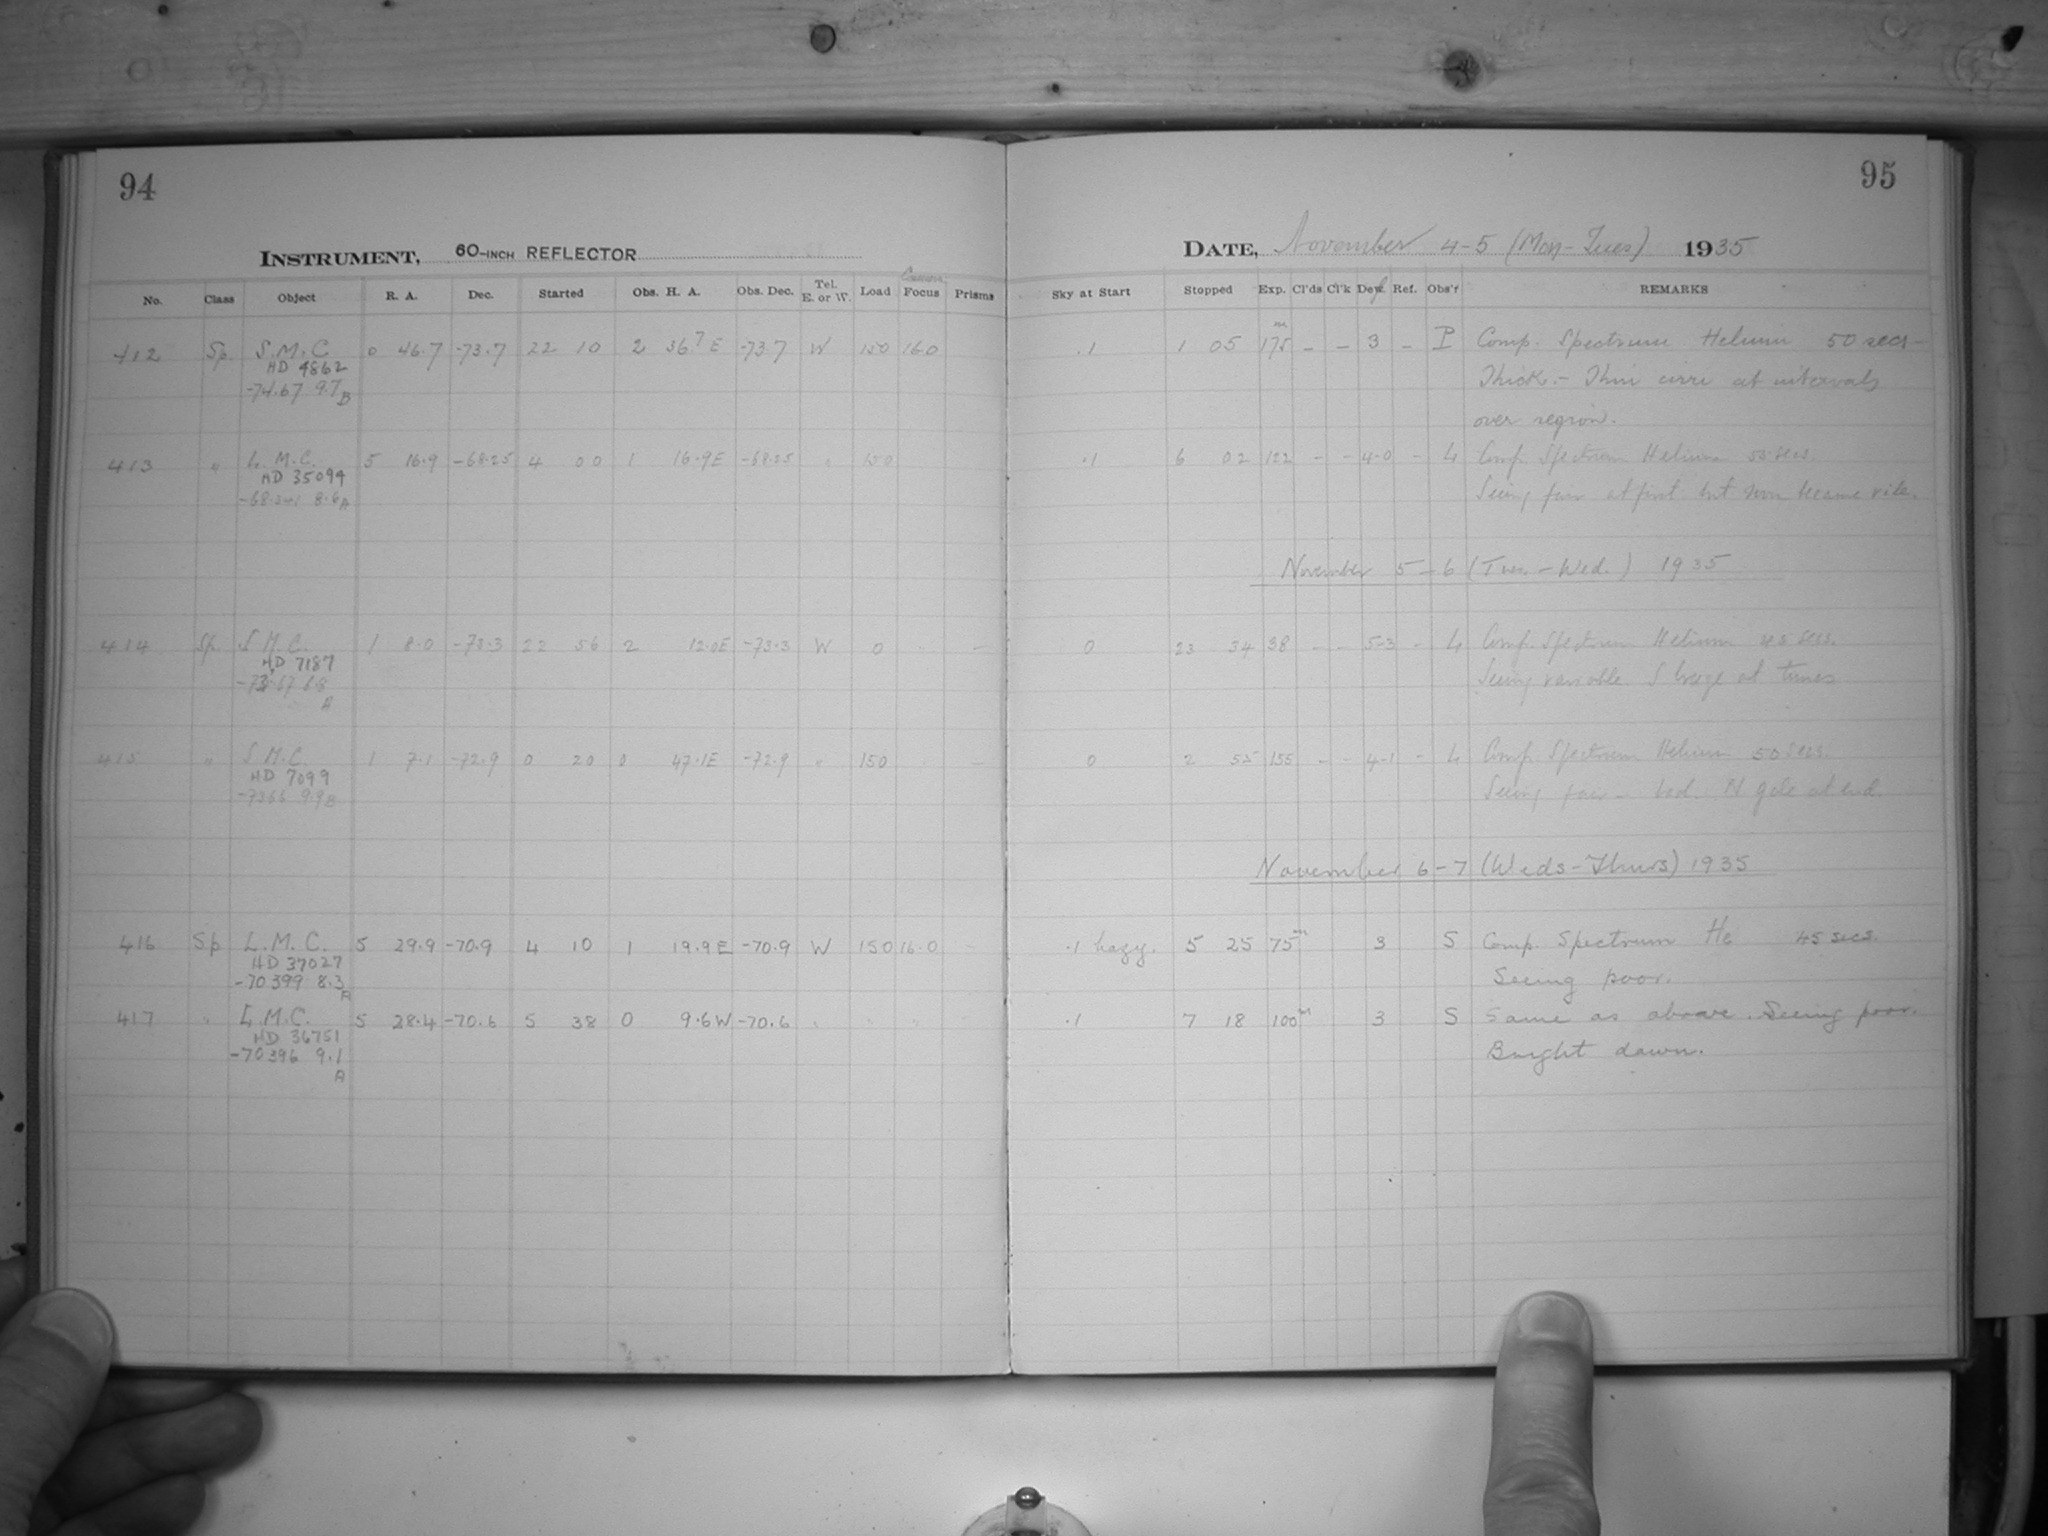 94
95
INSTRUMENT, 60-INCH REFLECTOR
DATE, November 4-5 (Mon-Tues) 1935
No. Class Object R. A. Dec. Started Obs. H. A. Obs. Dec. Tel. E. or W. Load Focus Prisms
Sky at Start Stopped Exp. Cl'ds Cl'k Dew. Ref. Obs'r REMARKS
412 Sp. S.M.C 0 46.7 -73.7 22 10 2 36.7 E -73.7 W 150 16.0 .1 1 05 175m - - 3 - P Comp. Spectrum Helium 50 secs -
HD 4862 Thick - Thin cirri at intervals
-74.67 9.7 B over region.
413 " L.M.C. 5 16.9 -68.25 4 00 1 16.9E -68.25 " 150 .1 6 02 122 - - 4-0 - L Comp. Spectrum Helium 55 secs.
HD 35094 Seeing fair at first but soon became vile.
8.6 A
November 5-6 (Tues.-Wed.) 1935
414 Sp. S.M.C. 1 8.0 -73.3 22 56 2 12.0E -73.3 W 0 - - 0 23 34 38 - - 5-3 - L Comp. Spectrum Helium 45 secs.
HD 7187 Seeing variable S breeze at times
A
415 " S.M.C. 1 7.1 -72.9 0 20 0 47.1E -72.9 " 150 - 0 2 55 155 - - 4-1 - L Comp. Spectrum Helium 50 secs.
HD 7099 Seeing fair - bad. N gale at end.
-7366 9.9 B
November 6-7 (Weds-Thurs) 1935
416 Sp L.M.C. 5 29.9 -70.9 4 10 1 19.9 E -70.9 W 150 16.0 - .1 hazy. 5 25 75m 3 S Comp. Spectrum He 45 secs.
HD 37027 Seeing poor.
-70 399 8.3 A
417 " L.M.C. 5 28.4 -70.6 5 38 0 9.6 W -70.6 " " " " .1 7 18 100m 3 S Same as above. Seeing poor.
HD 36751 Bright dawn.
-70 396 9.1
A